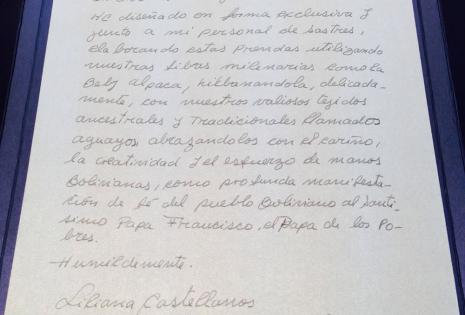 He diseñado en forma exclusiva y
junto a mi personal de sastres,
elaborando estas Prendas utilizando
nuestras fibras milenarias como la
Beby alpaca, hilbanandola, delicada-
mente, con nuestros valiosos tejidos
ancestrales y Tradicionales llamados
aguayos. abrazandolos con el cariño,
la creatividad y el esfuerzo de manos
Bolivianas, como profunda manifesta-
ción de fé del pueblo Boliviano al Santi-
simo Papa Francisco, el Papa de los Po-
bres.
Humildemente.
Liliana Castellanos